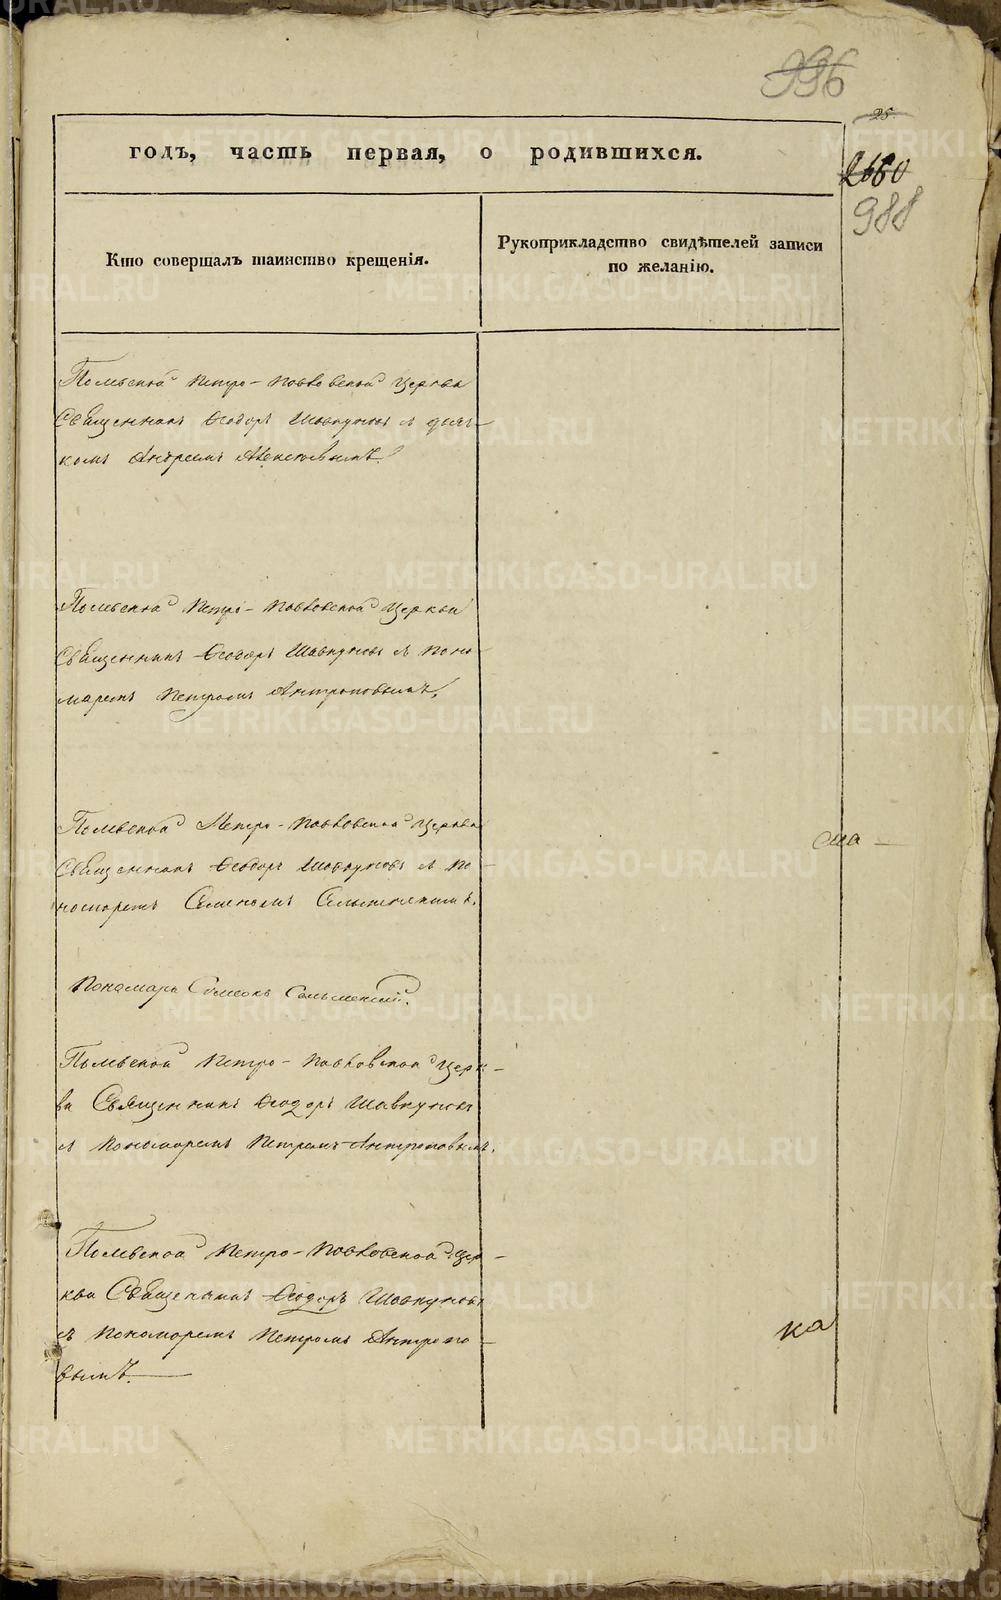 996
25
годъ, часть первая, о родившихся.
2660
988
Кто совершалъ таинство крещенія.
Рукоприкладство свидѣтелей записи
по желанію.
Полевской Петро-Павловской Церкви
Священникъ Ѳеодоръ Шавкуновъ съ дьяч-
комъ Андреемъ Алексѣевымъ.
Полевской Петро-Павловской Церкви
Священникъ Ѳеодоръ Шавкуновъ съ Поно-
маремъ Петромъ Антроповымъ.
Полевской Петро-Павловской Церкви
Священникъ Ѳеодоръ Шавкуновъ съ По-
номаремъ
сма
Пономарь Симеонъ
Полевской Петро-Павловской Церк-
ви Священникъ Ѳеодоръ Шавкуновъ
съ Пономаремъ Петромъ Антроповымъ.
Полевской Петро-Павловской Цер-
кви Священникъ Ѳеодоръ Шавкуновъ
съ Пономаремъ Петромъ Антропо-
вымъ.
ка
METRIKI.GASO-URAL.RU